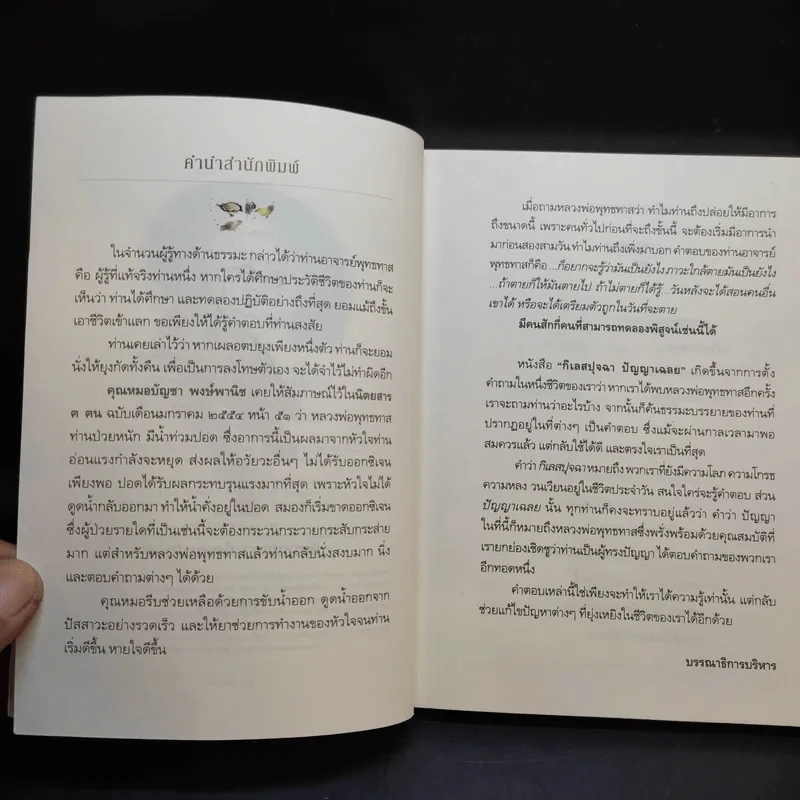 คำนำสำนักพิมพ์
ในจำนวนผู้รู้ทางด้านธรรมะ กล่าวได้ว่าท่านอาจารย์พุทธทาส
คือ ผู้รู้ที่แท้จริงท่านหนึ่ง หากใครได้ศึกษาประวัติชีวิตของท่านก็จะ
เห็นว่า ท่านได้ศึกษา และทดลองปฏิบัติอย่างถึงที่สุด ยอมแม้ถึงขั้น
เอาชีวิตเข้าแลก ขอเพียงให้ได้รู้คำตอบที่ท่านสงสัย
ท่านเคยเล่าไว้ว่า หากเผลอตบยุงเพียงหนึ่งตัว ท่านก็จะยอม
นั่งให้ยุงกัดทั้งคืน เพื่อเป็นการลงโทษตัวเอง จะได้จำไว้ไม่ทำผิดอีก
คุณหมอบัญชา พงษ์พานิช เคยให้สัมภาษณ์ไว้ในนิตยสาร
ฅ ฅน ฉบับเดือนมกราคม ๒๕๕๔ หน้า ๕๑ ว่า หลวงพ่อพุทธทาส
ท่านป่วยหนัก มีน้ำท่วมปอด ซึ่งอาการนี้เป็นผลมาจากหัวใจท่าน
อ่อนแรงกำลังจะหยุด ส่งผลให้อวัยวะอื่นๆ ไม่ได้รับออกซิเจน
เพียงพอ ปอดได้รับผลกระทบรุนแรงมากที่สุด เพราะหัวใจไม่ได้
ดูดน้ำกลับออกมา ทำให้น้ำคั่งอยู่ในปอด สมองก็เริ่มขาดออกซิเจน
ซึ่งผู้ป่วยรายใดที่เป็นเช่นนี้จะต้องกระวนกระวายกระสับกระส่าย
มาก แต่สำหรับหลวงพ่อพุทธทาสแล้วท่านกลับนั่งสงบมาก นิ่ง
และตอบคำถามต่างๆ ได้ด้วย
คุณหมอรีบช่วยเหลือด้วยการขับน้ำออก ดูดน้ำออกจาก
ปัสสาวะอย่างรวดเร็ว และให้ยาช่วยการทำงานของหัวใจจนท่าน
เริ่มดีขึ้น หายใจดีขึ้น
เมื่อถามหลวงพ่อพุทธทาสว่า ทำไมท่านถึงปล่อยให้มีอาการ
ถึงขนาดนี้ เพราะคนทั่วไปก่อนที่จะถึงขั้นนี้ จะต้องเริ่มมีอาการนำ
มาก่อนสองสามวัน ทำไมท่านถึงเพิ่งมาบอก คำตอบของท่านอาจารย์
พุทธทาสก็คือ ...ก็อยากจะรู้ว่ามันเป็นยังไง ภาวะใกล้ตายมันเป็นยังไง
...ถ้าตายก็ให้มันตายไป ถ้าไม่ตายก็ได้รู้...วันหลังจะได้สอนคนอื่น
เขาได้ หรือจะได้เตรียมตัวถูกในวันที่จะตาย
มีคนสักกี่คนที่สามารถทดลองพิสูจน์เช่นนี้ได้
หนังสือ “กิเลสปุจฉา ปัญญาเฉลย” เกิดขึ้นจากการตั้ง
คำถามในหนึ่งชีวิตของเราว่า หากเราได้พบหลวงพ่อพุทธทาสอีกครั้ง
เราจะถามท่านว่าอะไรบ้าง จากนั้นก็ค้นธรรมะบรรยายของท่านที่
ปรากฏอยู่ในที่ต่างๆ เป็นคำตอบ ซึ่งแม้จะผ่านกาลเวลามาพอ
สมควรแล้ว แต่กลับใช้ได้ดี และตรงใจเราเป็นที่สุด
คำว่า กิเลสปุจฉา หมายถึง พวกเราที่ยังมีความโลภ ความโกรธ
ความหลง วนเวียนอยู่ในชีวิตประจำวัน สนใจใคร่จะรู้คำตอบ ส่วน
ปัญญาเฉลย นั้น ทุกท่านก็คงจะทราบอยู่แล้วว่า คำว่า ปัญญา
ในที่นี้ก็หมายถึงหลวงพ่อพุทธทาสซึ่งพรั่งพร้อมด้วยคุณสมบัติที่
เรายกย่องเชิดชูว่าท่านเป็นผู้ทรงปัญญา ได้ตอบคำถามของพวกเรา
อีกทอดหนึ่ง
คำตอบเหล่านี้ใช่เพียงจะทำให้เราได้ความรู้เท่านั้น แต่กลับ
ช่วยแก้ไขปัญหาต่างๆ ที่ยุ่งเหยิงในชีวิตของเราได้อีกด้วย
บรรณาธิการบริหาร